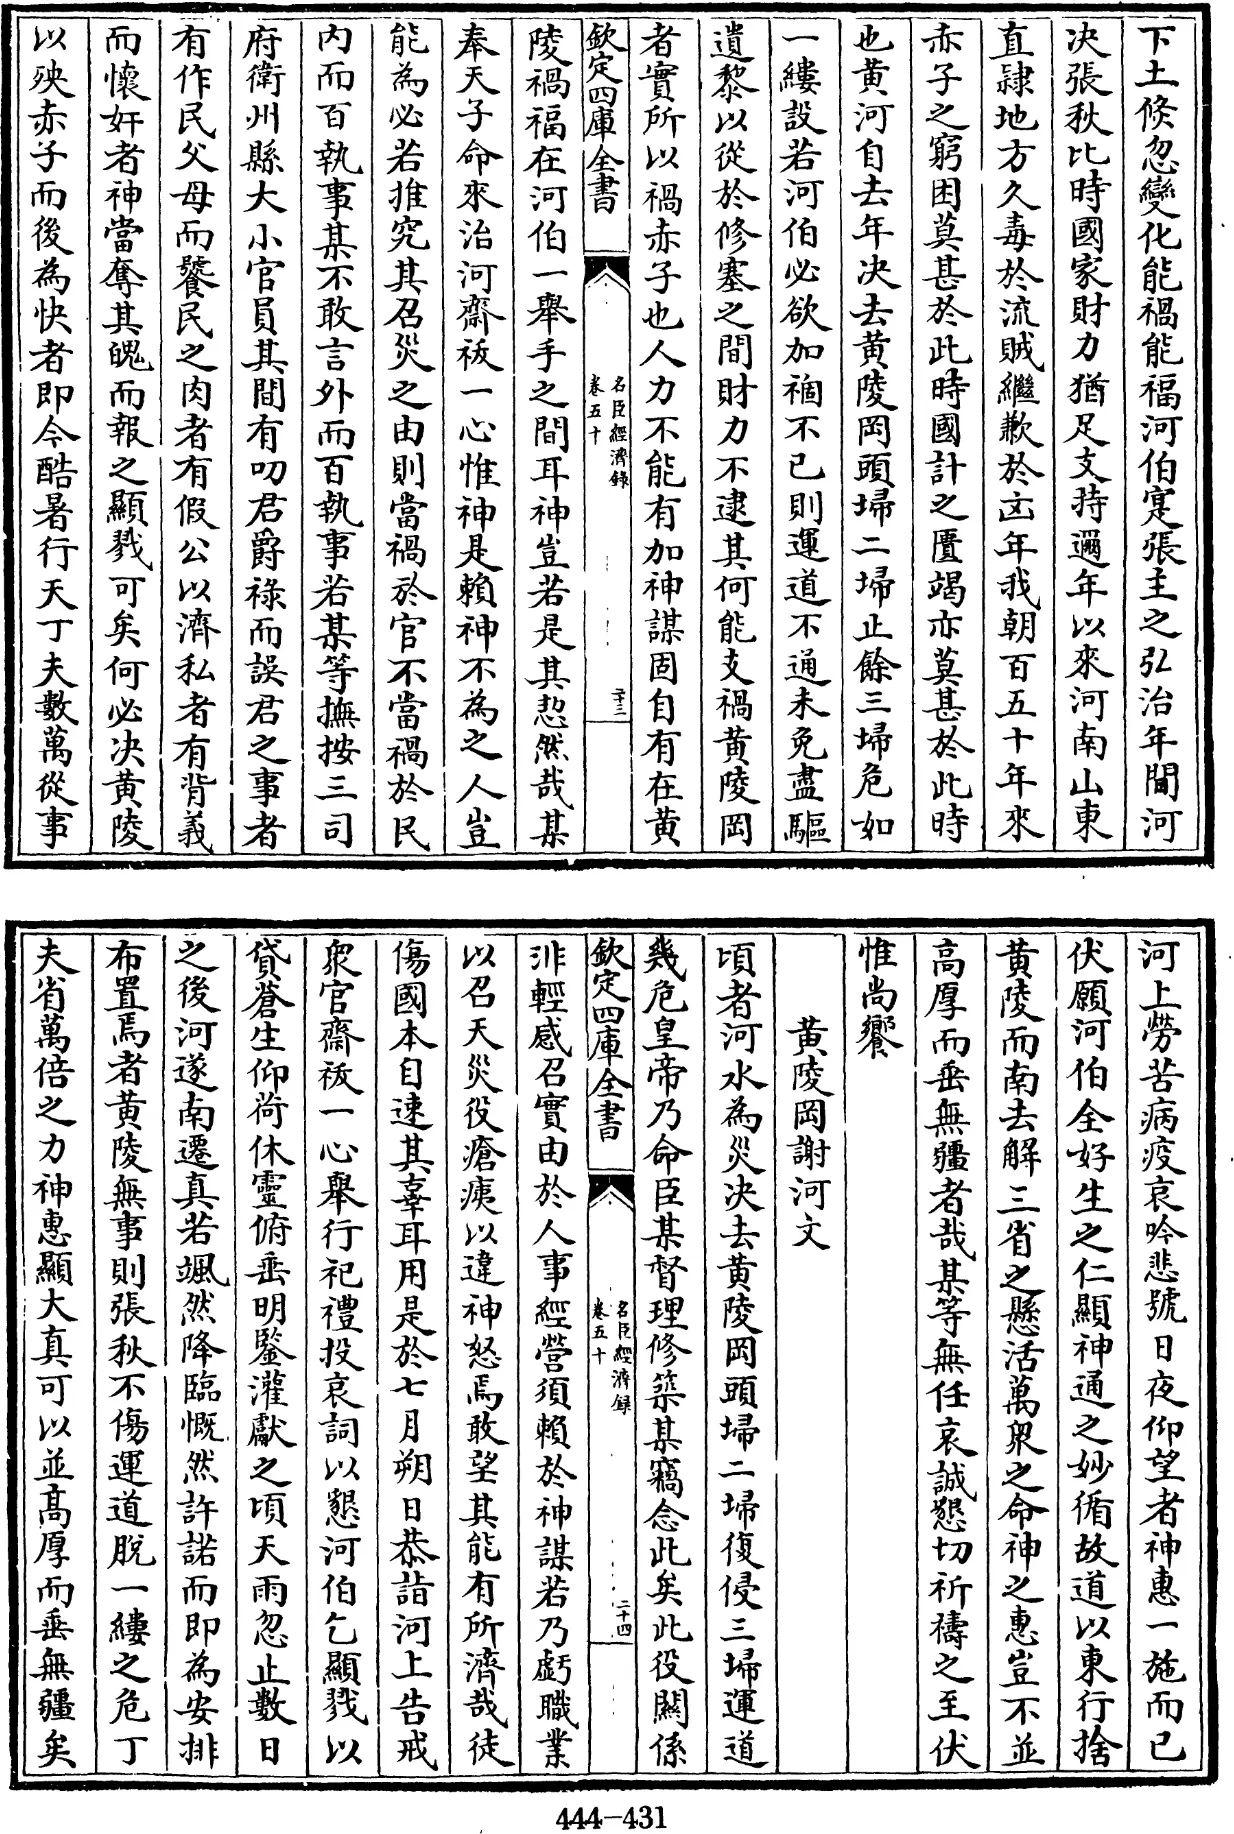 下土倐忽變化能禍能福河伯寔張主之弘治年間河
决張秋比時國家財力猶足支持邇年以來河南山東
直隷地方久毒於流賊繼歉於凶年我朝百五十年來
赤子之窮困莫甚於此時國計之匱竭亦莫甚於此時
也黄河自去年决去黄陵岡頭埽二埽止餘三埽危如
一縷設若河伯必欲加禍不已則運道不通未免盡驅
遺黎以從於修塞之間財力不逮其何能支禍黄陵岡
者實所以禍赤子也人力不能有加神謀固自有在黄
欽定四庫全書
名臣經濟錄
卷五十
二十三
陵禍福在河伯一舉手之間耳神豈若是其恝然哉某
奉天子命來治河齋袚一心惟神是賴神不為之人豈
能為必若推究其召災之由則當禍於官不當禍於民
内而百執事某不敢言外而百執事若某等撫按三司
府衛州縣大小官員其間有叨君爵祿而誤君之事者
有作民父母而饕民之肉者有假公以濟私者有背義
而懷奸者神當奪其魄而報之顯戮可矣何必决黄陵
以殃赤子而後為快者即今酷暑行天丁夫數萬從事
河上勞苦病疫哀吟悲號日夜仰望者神惠一施而已
伏願河伯全好生之仁顯神通之妙循故道以東行捨
黄陵而南去解三省之懸活萬衆之命神之惠豈不並
高厚而垂無疆者哉某等無任哀誠懇切祈禱之至伏
惟尚饗
黄陵岡謝河文
頃者河水為災决去黄陵岡頭埽二埽復侵三埽運道
幾危皇帝乃命臣某督理修築某竊念此矣此役關係
欽定四庫全書
名臣經濟録
卷五十
二十四
非輕感召實由於人事經營須賴於神謀若乃虧職業
以召天災役瘡痍以違神怒焉敢望其能有所濟哉徒
傷國本自速其辜耳用是於七月朔日恭詣河上告戒
衆官齋袚一心舉行祀禮投哀詞以懇河伯乞顯戮以
貸蒼生仰荷休靈俯垂明鑒灌獻之頃天雨忽止數日
之後河遂南遷真若颯然降臨慨然許諾而即為安排
布置焉者黄陵無事則張秋不傷運道脱一縷之危丁
夫省萬倍之力神惠顯大真可以並高厚而垂無疆矣
444-431